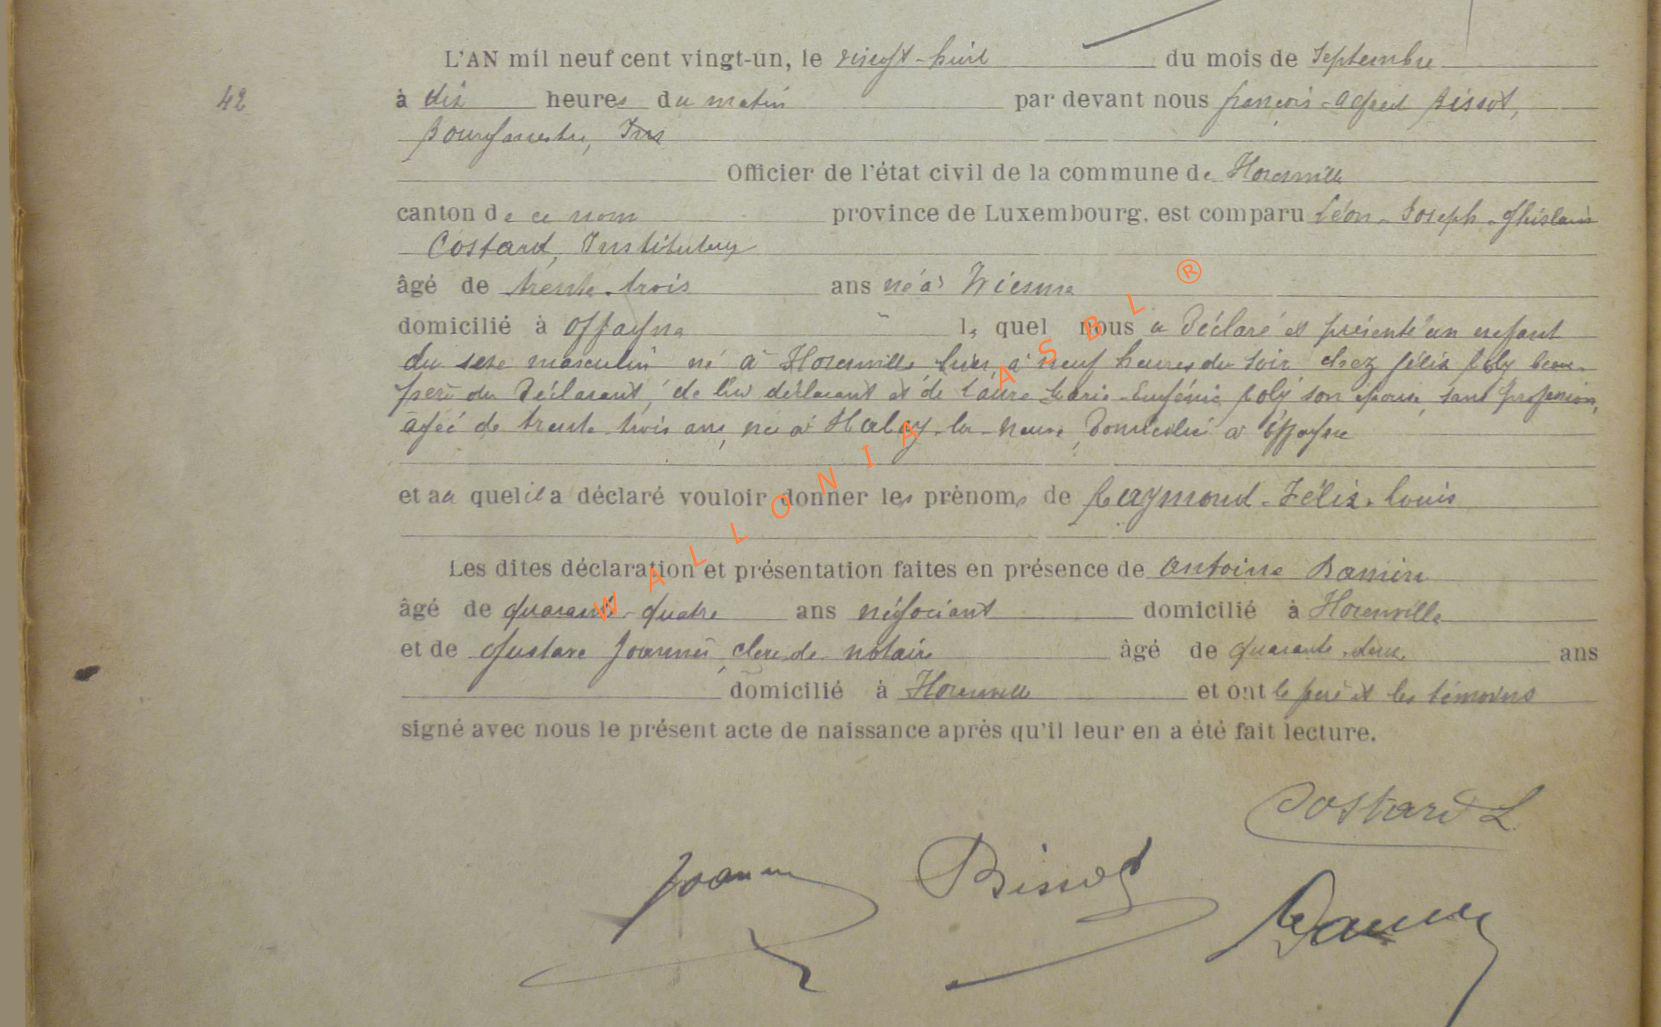 L'AN mil neuf cent vingt-un, le vingt-huit du mois de Septembre
42
à dix heures du matin par devant nous françois-Alfred Bissot,
Bourgmestre,
Officier de l'état civil de la commune de Houmville
canton de ce nom province de Luxembourg, est comparu Léon-Joseph-Ghislain
Costard, Instituteur
âgé de trente-trois ans né à Wiesme
domicilié à Offagne lequel nous a déclaré et présenté un enfant
du sexe masculin né à hier à neuf heures du soir chez félix Poly beau-
père du déclarant, de lui déclarant et de Laure-Marie-Eugénie Poly son épouse, sans profession,
âgée de trente-trois ans, née à Habay-la-Neuve, domicilié à Offagne
et auquel il a déclaré vouloir donner les prénoms de Raymond-Félix-Louis
Les dites déclaration et présentation faites en présence de Antoine
âgé de quarante-quatre ans négociant domicilié à
et de Gustave clerc de notaire âgé de quarante-deux ans
domicilié à et ont le père et les témoins
signé avec nous le présent acte de naissance après qu'il leur en a été fait lecture.
Costard L
Bissot
WALLONIA ASBL ®